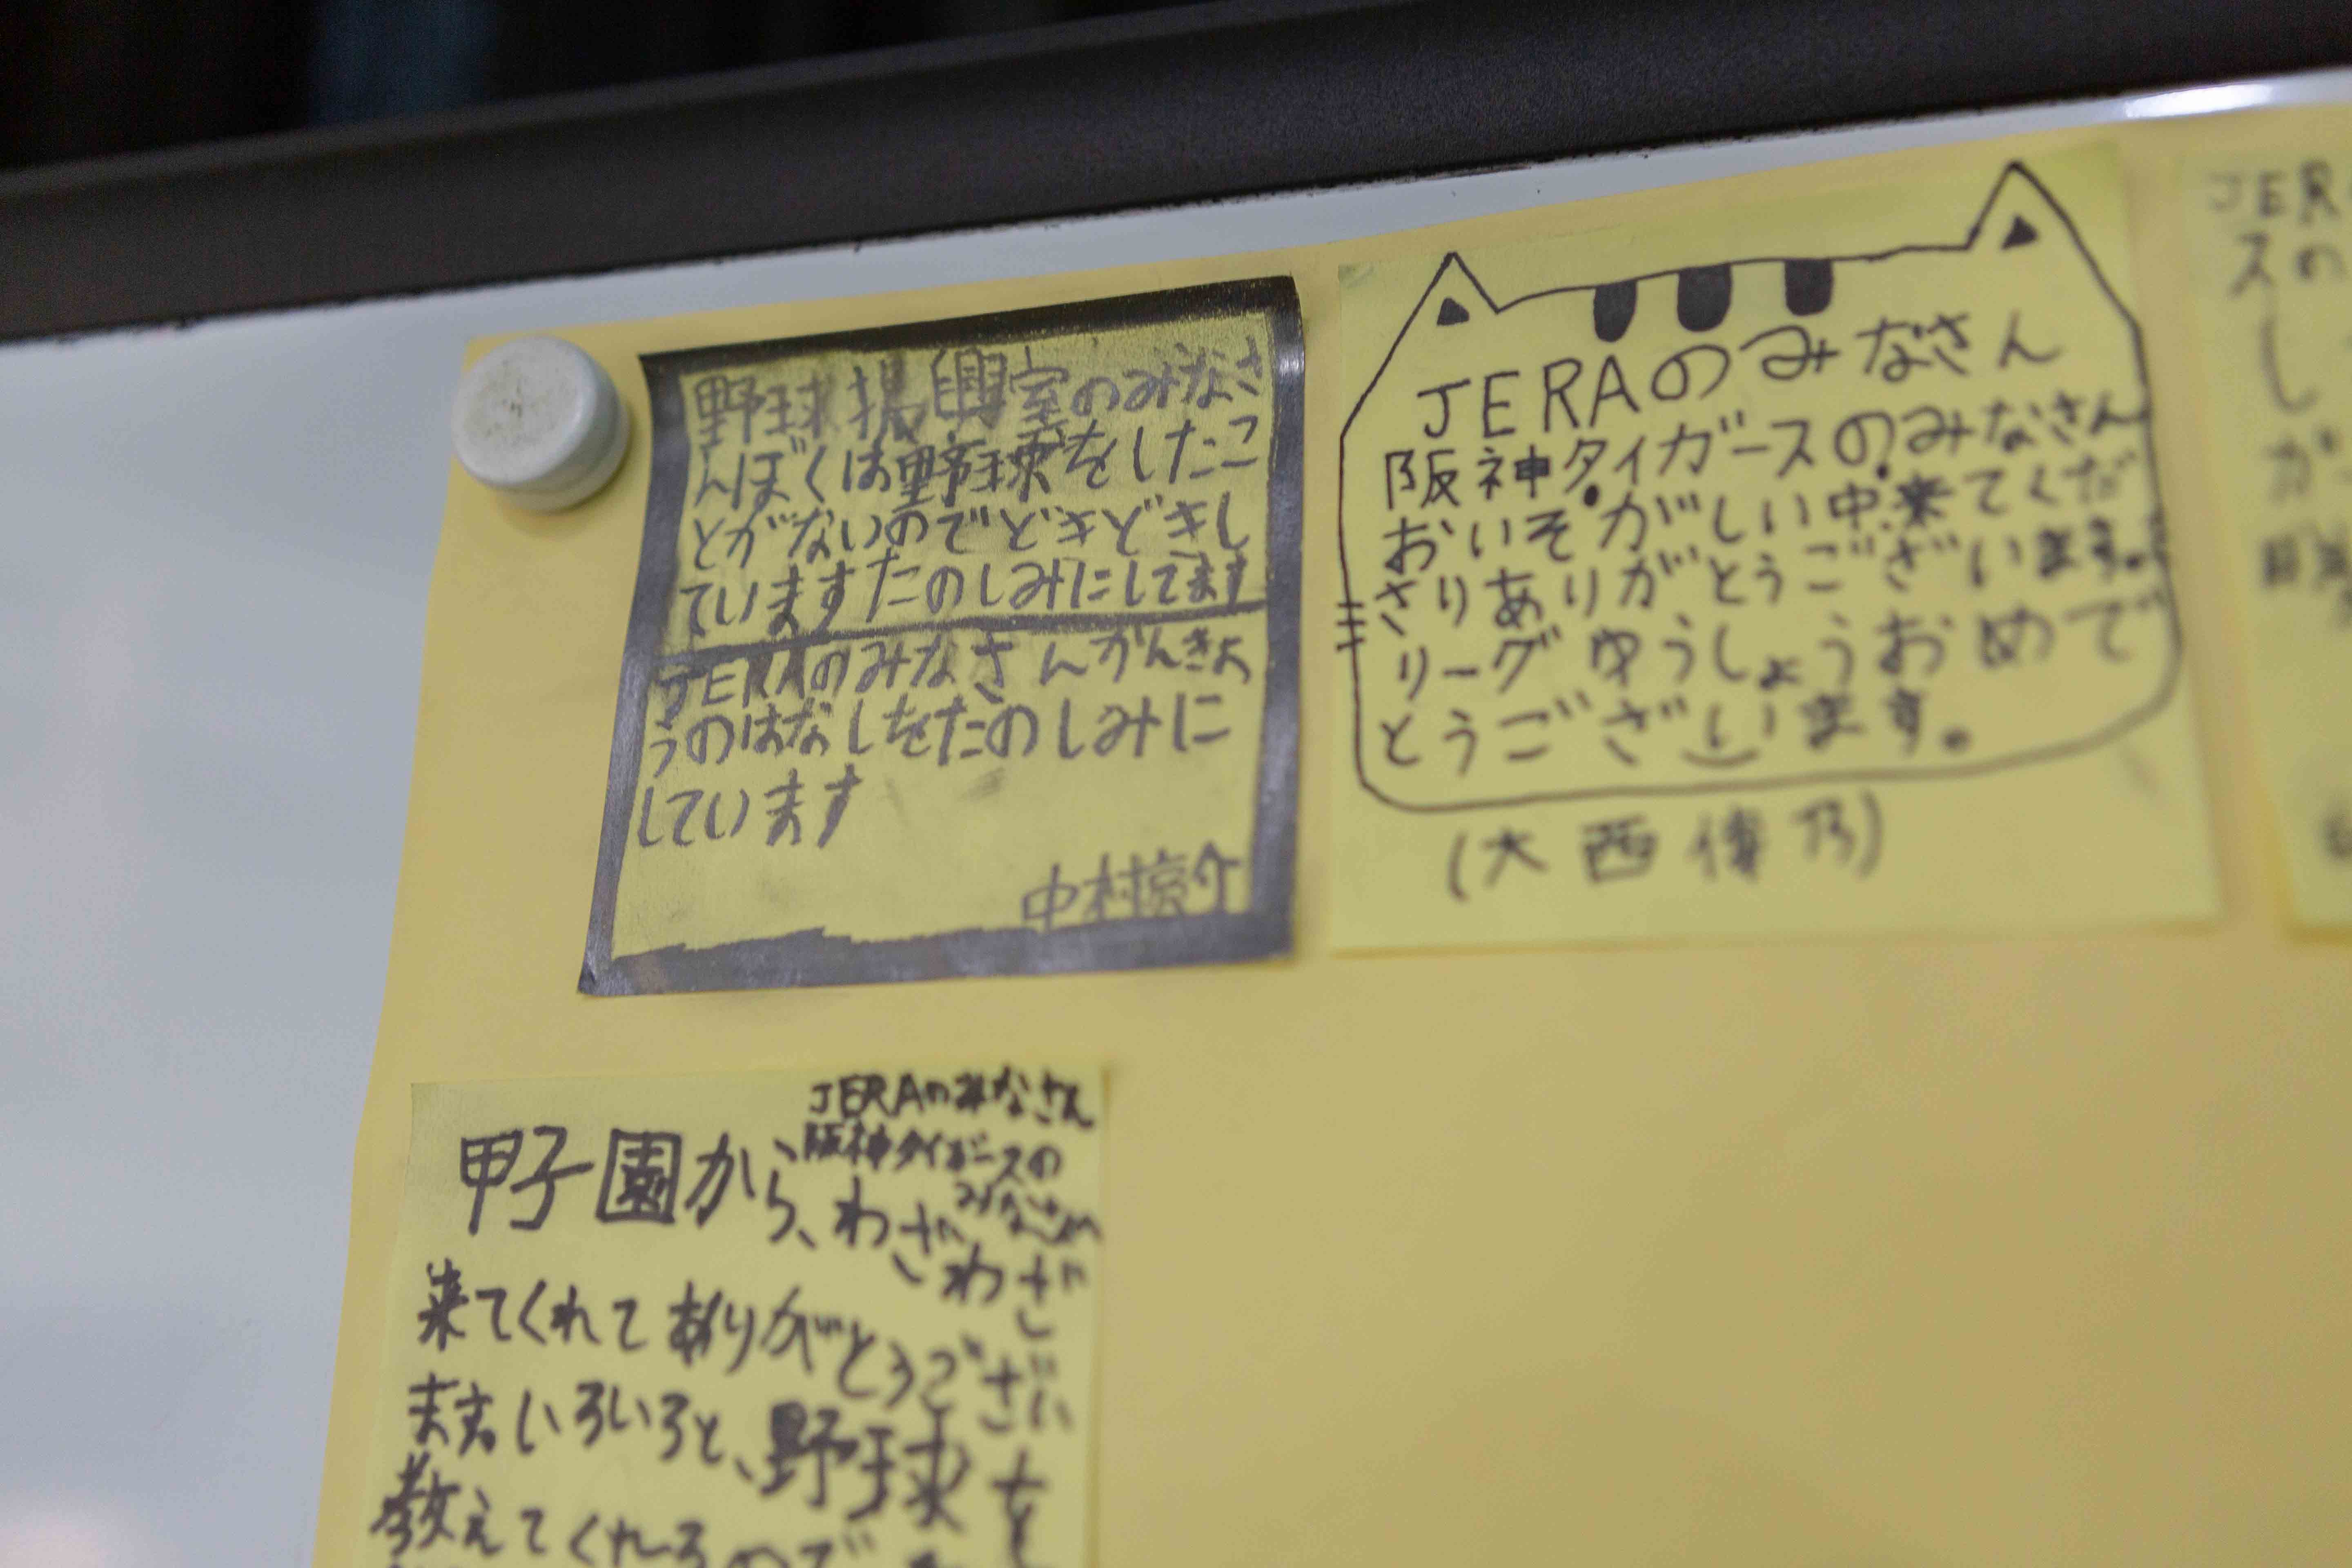 野球振興室のみなさ
んぼくは野球をしたこ
とがないのでどきどきし
ていますたのしみにしてます
JERAのみなさんかんきょ
うのはなしをたのしみに
しています
中村涼介
JERAのみなさん
阪神タイガースのみなさん
おいそがしい中来てくだ
さりありがとうございます。
リーグゆうしょうおめで
とうございます。
(大西 乃)
JER
スの
し
が
JERAのみなさん
阪神タイガースの
みなさんへ
甲子園から、わざわざ
来てくれてありがとうござい
ます。いろいろと、野球を
教えてくれるので